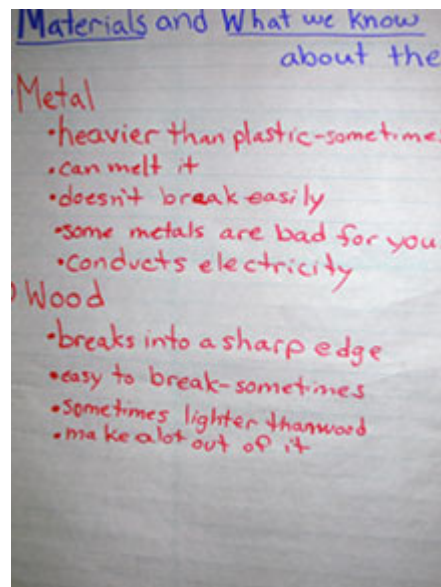 Materials and What we know
about the
Metal
•heavier than plastic-sometime
•can melt it
•doesn't break easily
•some metals are bad for you
•conducts electricity
Wood
•breaks into a sharp edge
•easy to break-sometimes
•sometimes lighter than wood
•make alot out of it